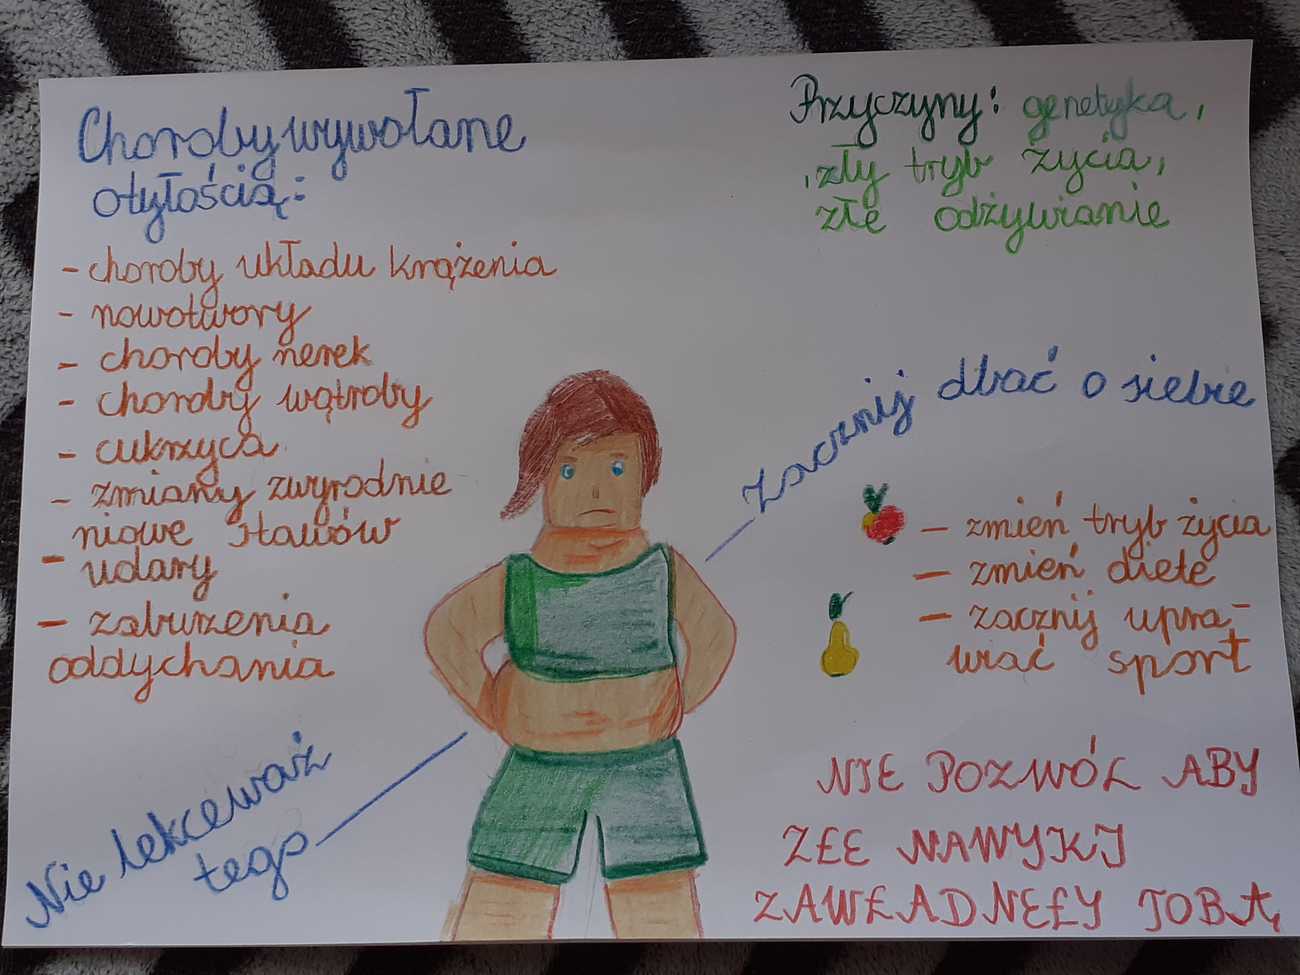 Choroby wywołane
otyłością:
- choroby układu krążenia
- nowotwory
- choroby nerek
- choroby wątroby
- cukrzyca
- zmiany zwyrodnie
niowe stawów
- udary
- zaburzenia
oddychania
Nie lekceważ
tego
Przyczyny: genetyka,
, zły tryb życia,
złe odżywianie
Zacznij dbać o siebie
- zmień tryb życia
- zmień dietę
- zacznij upra-
wiać sport
NIE POZWÓL ABY
ZŁE NAWYKI
ZAWŁADNEŁY TOBĄ